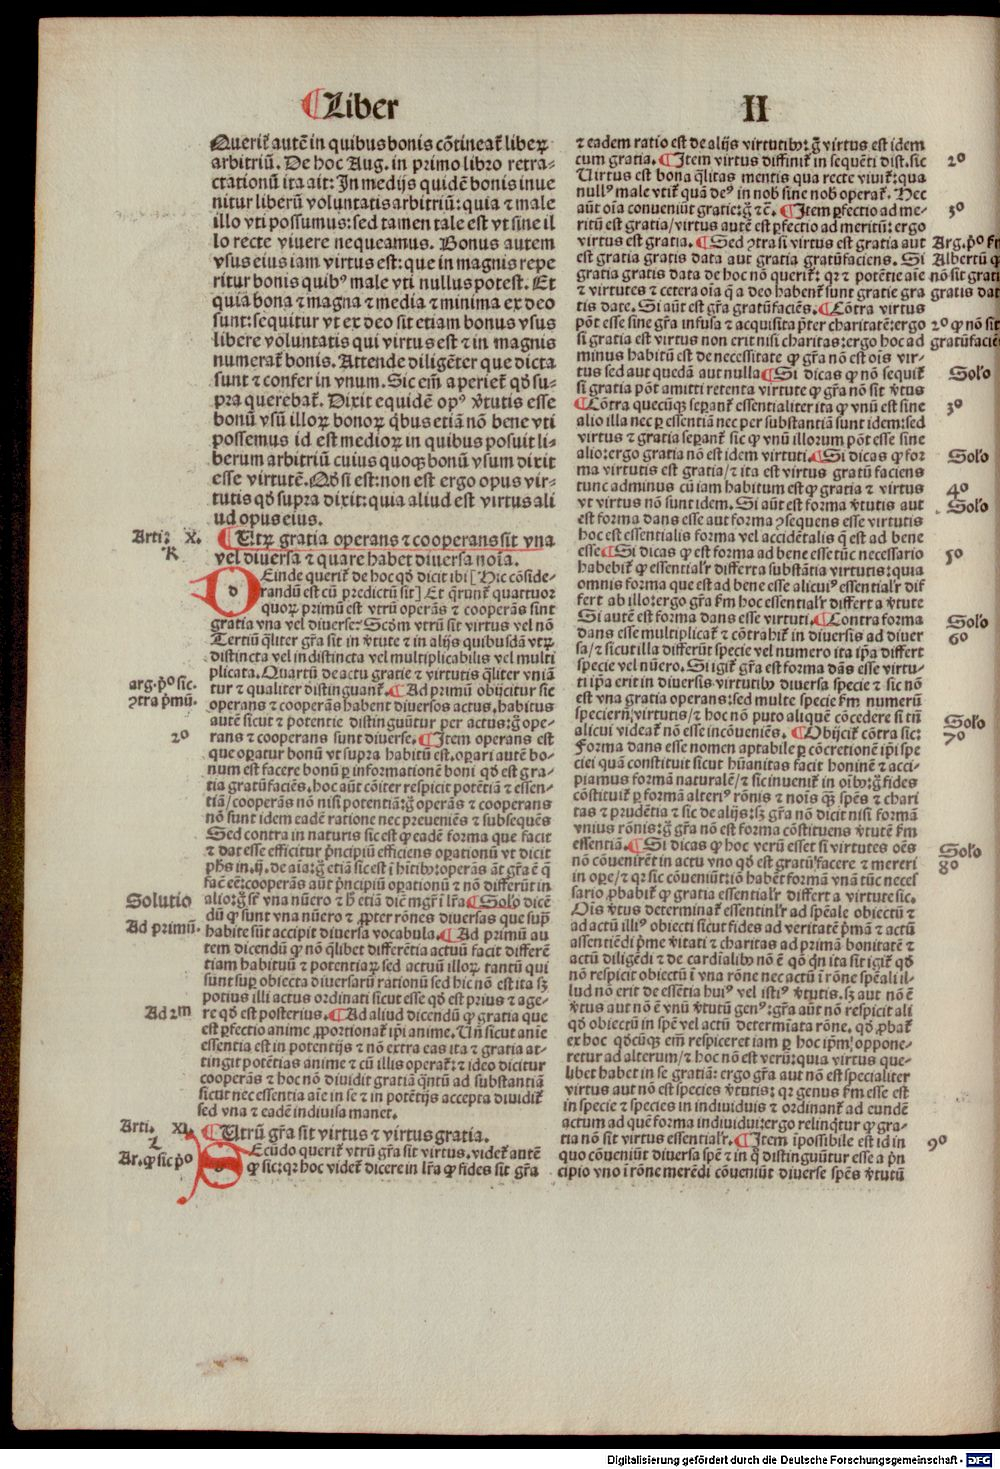 Liber
II
Querit᷑ autẽ in quibus bonis cõtineat᷑ liberꝝ
arbitriũ. De hoc Aug. in primo libro retra-
ctationũ ita ait: In medijs quidẽ bonis inue
nitur liberũ voluntatis arbitriũ: quia ⁊ male
illo vti possumus: sed tamen tale est vt sine il
lo recte viuere nequeamus. Bonus autem
vsus eius iam virtus est: que in magnis repe
ritur bonis quibꝰ male vti nullus potest. Et
quia bona ⁊ magna ⁊ media ⁊ minima ex deo
sunt: sequitur vt ex deo sit etiam bonus vsus
libere voluntatis qui virtus est ⁊ in magnis
numerat᷑ bonis. Attende diligẽter que dicta
sunt ⁊ confer in vnum. Sic em̃ aperiet᷑ qđ su-
pra querebat᷑. Dixit equidẽ opꝰ v̾tutis esse
bonũ vsũ illoꝝ bonoꝝ q̇bus etiã nõ bene vti
possemus id est medioꝝ in quibus posuit li-
berum arbitriũ cuius quoqꝫ bonũ vsum dixit
esse virtutẽ. Qđ si est: non est ergo opus vir-
tutis qđ supra dixit: quia aliud est virtus ali
ud opus eius.
Arti: X.
¶ Utꝝ gratia operans ⁊ cooperans sit vna
vel diuersa ⁊ quare habet diuersa noĩa.
Einde querit᷑ de hoc qđ dicit ibi [Hic cõside-
randũ est cũ predictũ sit] Et q̃runt᷑ quattuor
quoꝝ primũ est vtrũ operãs ⁊ cooperãs sint
gratia vna vel diuerse: Scõm vtrũ sit virtus vel nõ
Tertiũ q̃liter gr̃a sit in v̾tute ⁊ in alijs quibusdã vtꝝ
distincta vel indistincta vel multiplicabilis vel multi
plicata. Quartũ de actu gratie ⁊ virtutis q̃liter vniã
tur ⁊ qualiter distinguant᷑. ¶ Ad primũ obijcitur sic
arg. p̃º sic.
ꝯtra p̃mũ.
operans ⁊ cooperãs habent diuersos actus. habitus
autẽ sicut ⁊ potentie distinguũtur per actus: g̊ ope-
rans ⁊ cooperans sunt diuerse. ¶ Item operans est
2º
que oꝑatur bonũ vt supra habitũ est. oꝑari autẽ bo-
num est facere bonũ ꝑ informationẽ boni qđ est gra-
tia gratũ faciẽs. hoc aũt cõiter respicit potẽtiã ⁊ essen-
tiã/ cooperãs nõ nisi potentiã: g̊ operãs ⁊ cooperans
nõ sunt idem eadẽ ratione nec preueniẽs ⁊ subsequẽs
Sed contra in naturis sic est ꝙ eadẽ forma que facit
⁊ dat esse efficitur p̃ncipiũ efficiens oꝑationũ vt dicit
ph̃s in .ij. de aĩa: g̊ etiã sic est ĩ h̾itibꝰ: operãs aũt gr̃a ẽ q̃
facẽ eẽ: cooperãs aũt p̃ncipiũ oꝑationũ ⁊ nõ differũt in
Solutio
alio: g̊ s̾t vna nũero ⁊ h̾ etiã dicẽ mgr̃ i lr̃a ¶ Solõ dicẽ
dũ ꝙ sunt vna nũero ⁊ ꝓpter rõnes diuersas que supꝰ
Ad primũ.
habite sũt accipit diuersa vocabula. ¶ Ad primũ au
tem dicendũ ꝙ nõ q̃libet differẽtia actuũ facit differẽ
tiam habituũ ⁊ potentiaꝝ sed actuũ illoꝝ tantũ qui
sunt supꝰ obiecta diuersarũ rationũ sed hic nõ est ita sꝫ
potius illi actus ordinati sicut esse qđ est prius ⁊ age-
Ad 2m
re qđ est posterius. ¶ Ad aliud dicendũ ꝙ gratia que
est ꝑfectio anime ꝓportionat᷑ ip̃i anime. Uñ sicut anie
essentia est in potentijs ⁊ nõ extra eas ita ⁊ gratia at-
tingit potẽtias anime ⁊ cũ illis operat᷑: ⁊ ideo dicitur
cooperãs ⁊ hoc nõ diuidit gratiã q̃ntũ ad substantiã
sicut nec essentia aĩe in se ⁊ in potẽtijs accepta diuidit᷑
sed vna ⁊ eadẽ indiuisa manet.
Arti. XI.
¶ Utrũ gr̃a sit virtus ⁊ virtus gratia.
Ar. ꝙ sic p̃º
Ecũdo querit᷑ vtrũ gr̃a sit virtus. videt᷑ autẽ
ꝙ sic: qꝛ hoc videt᷑ dicere in lr̃a ꝙ fides sit gr̃a
⁊ eadem ratio est de alijs virtutibꝰ: g̊ virtus est idem
cum gratia. ¶ Item virtus diffinit᷑ in sequẽti dist. sic
2º
Uirtus est bona q̃litas mentis qua recte viuit᷑: qua
nullꝰ male vtit᷑ quã deꝰ in nob̾ sine nob̾ operat᷑. Hec
aũt oĩa conueniũt gratie: g̊ ⁊c̃. ¶ Item ꝑfectio ad me-
3º
ritũ est gratia/ virtus autẽ est ꝑfectio ad meritũ: ergo
virtus est gratia. ¶ Sed ꝯtra si virtus est gratia aut
Arg. p̃º
est gratia gratis data aut gratia gratũfaciens. Si
Albertũ
gratia gratis data de hoc nõ querit᷑: qꝛ ⁊ potẽtie aĩe
nõ sit grati
⁊ virtutes ⁊ cetera oĩa q̃ a deo habent᷑ sunt gratie gra
gratis dat
tis date. Si aũt est gr̃a gratũfaciẽs. ¶ Cõtra virtus
põt esse sine gr̃a infusa ⁊ acquisita p̃ter charitatẽ: ergo
2º ꝙ nõ sit
si gratia est virtus non erit nisi charitas: ergo hoc ad
gratũfaciẽ
minus habitũ est de necessitate ꝙ gr̃a nõ est oĩs vir-
tus sed aut quedã aut nulla ¶ Si dicas ꝙ nõ sequit᷑
Solo
si gratia põt amitti retenta virtute ꝙ gr̃a nõ sit v̾tus
¶ Cõtra quecũqꝫ seꝑant᷑ essentialiter ita ꝙ vnũ est sine
3º
alio illa nec ꝑ essentiã nec per substantiã sunt idem: sed
virtus ⁊ gratia seꝑant᷑ sic ꝙ vnũ illorum põt esse sine
alio: ergo gratia nõ est idem virtuti. ¶ Si dicas ꝙ for
Solo
ma virtutis est gratia/ ⁊ ita est virtus gratũ faciens
tunc adminus cũ iam habitum est ꝙ gratia ⁊ virtus
4º
vt virtus nõ sunt idem. Si aũt est forma v̾tutis aut
Solo
est forma dans esse aut forma ꝯsequens esse virtutis
hoc est essentialis forma vel accidẽtalis q̃ est ad bene
esse ¶ Si dicas ꝙ est forma ad bene esse tũc necessario
5º
habebit᷑ ꝙ essential᷑r differt a substãtia virtutis: quia
omnis forma que est ad bene esse alicuiꝰ essential᷑r dif
fert ab illo: ergo gr̃a ẜm hoc essential᷑r differt a v̾tute
Si autẽ est forma dans esse virtuti. ¶ Contra forma
Solo
dans esse multiplicat᷑ ⁊ cõtrahit᷑ in diuersis ad diuer
6º
sa/ ⁊ sicut illa differũt specie vel numero ita ip̃a differt
specie vel nũero. Si igit᷑ gr̃a est forma dãs esse virtu-
ti ip̃a erit in diuersis virtutibꝰ diuersa specie ⁊ sic nõ
est vna gratia operans: sed multe specie ẜm numerũ
specierũ virtutis/ ⁊ hoc nõ puto aliquẽ cõcedere si tñ
Solo
alicui videat᷑ nõ esse incõueniẽs. ¶ Obijcit᷑ cõtra sic:
7º
Forma dans esse nomen aptabile ꝑ cõcretionẽ ip̃i spe
ciei quã constituit sicut hũanitas facit hominẽ ⁊ acci-
piamus formã naturalẽ/ ⁊ sic inuenit᷑ in oĩbꝰ: g̊ fides
cõstituit᷑ ꝑ formã alteriꝰ rõnis ⁊ noĩs qꝫ spẽs ⁊ chari
tas ⁊ prudẽtia ⁊ sic de alijs: sꝫ gr̃a nõ dicit nisi formã
vnius rõnis: g̊ gr̃a nõ est forma cõstituens v̾tutẽ ẜm
essentiã. ¶ Si dicas ꝙ hoc verũ esset si virtutes oẽs
Solo
nõ cõuenirẽt in actu vno qđ est gratũ facere ⁊ mereri
8º
in oꝑe/ ⁊ qꝛ sic cõueniũt: iõ habẽt formã vnã tũc necesſ
sario ꝓbabit᷑ ꝙ gratia essential᷑r differt a virtute sic.
Oĩs v̾tus determinat᷑ essential᷑r ad sp̃eale obiectũ ⁊
ad actũ illiꝰ obiecti sicut fides ad veritatẽ p̃mã ⁊ actũ
assentiẽdi p̃me v̾itati ⁊ charitas ad primã bonitatẽ ⁊
actũ diligẽdi ⁊ de cardĩalibꝰ nõ ẽ qõ q̃n ita sit igit᷑ qđ
nõ respicit obiectũ ĩ vna rõne nec actũ ĩ rõne sp̃eali il-
lud nõ erit de essẽtia huiꝰ vel istiꝰ v̾tutis. sꝫ aut nõ ẽ
v̾tus aut nõ ẽ vnũ v̾tutũ genꝰ: gr̃a aũt nõ respicit ali
qđ obiectũ in spẽ vel actũ determĩata rõne. qđ ꝓbat᷑
ex hoc qđcũqꝫ em̃ respiceret iam ꝑ hoc ip̃m oppone-
retur ad alterum/ ⁊ hoc nõ est verũ: quia virtus que-
libet habet in se gratiã: ergo gr̃a aut nõ est specialiter
virtus aut nõ est species v̾tutis: qꝛ genus ẜm esse est
in specie ⁊ species in indiuiduis ⁊ ordinant᷑ ad eundẽ
actum ad quẽ forma indiuidui: ergo relinq̃tur ꝙ gra-
tia nõ sit virtus essential᷑r. ¶ Item ĩpossibile est id in
9º
quo cõueniũt diuersa spẽ ⁊ in q̊ distinguũtur esse a p̃n
cipio vno ĩ rõne merẽdi cõueniũt diuerse spẽs v̾tutũ
Digitalisierung gefördert durch die Deutsche Forschungsgemeinschaft - DFG